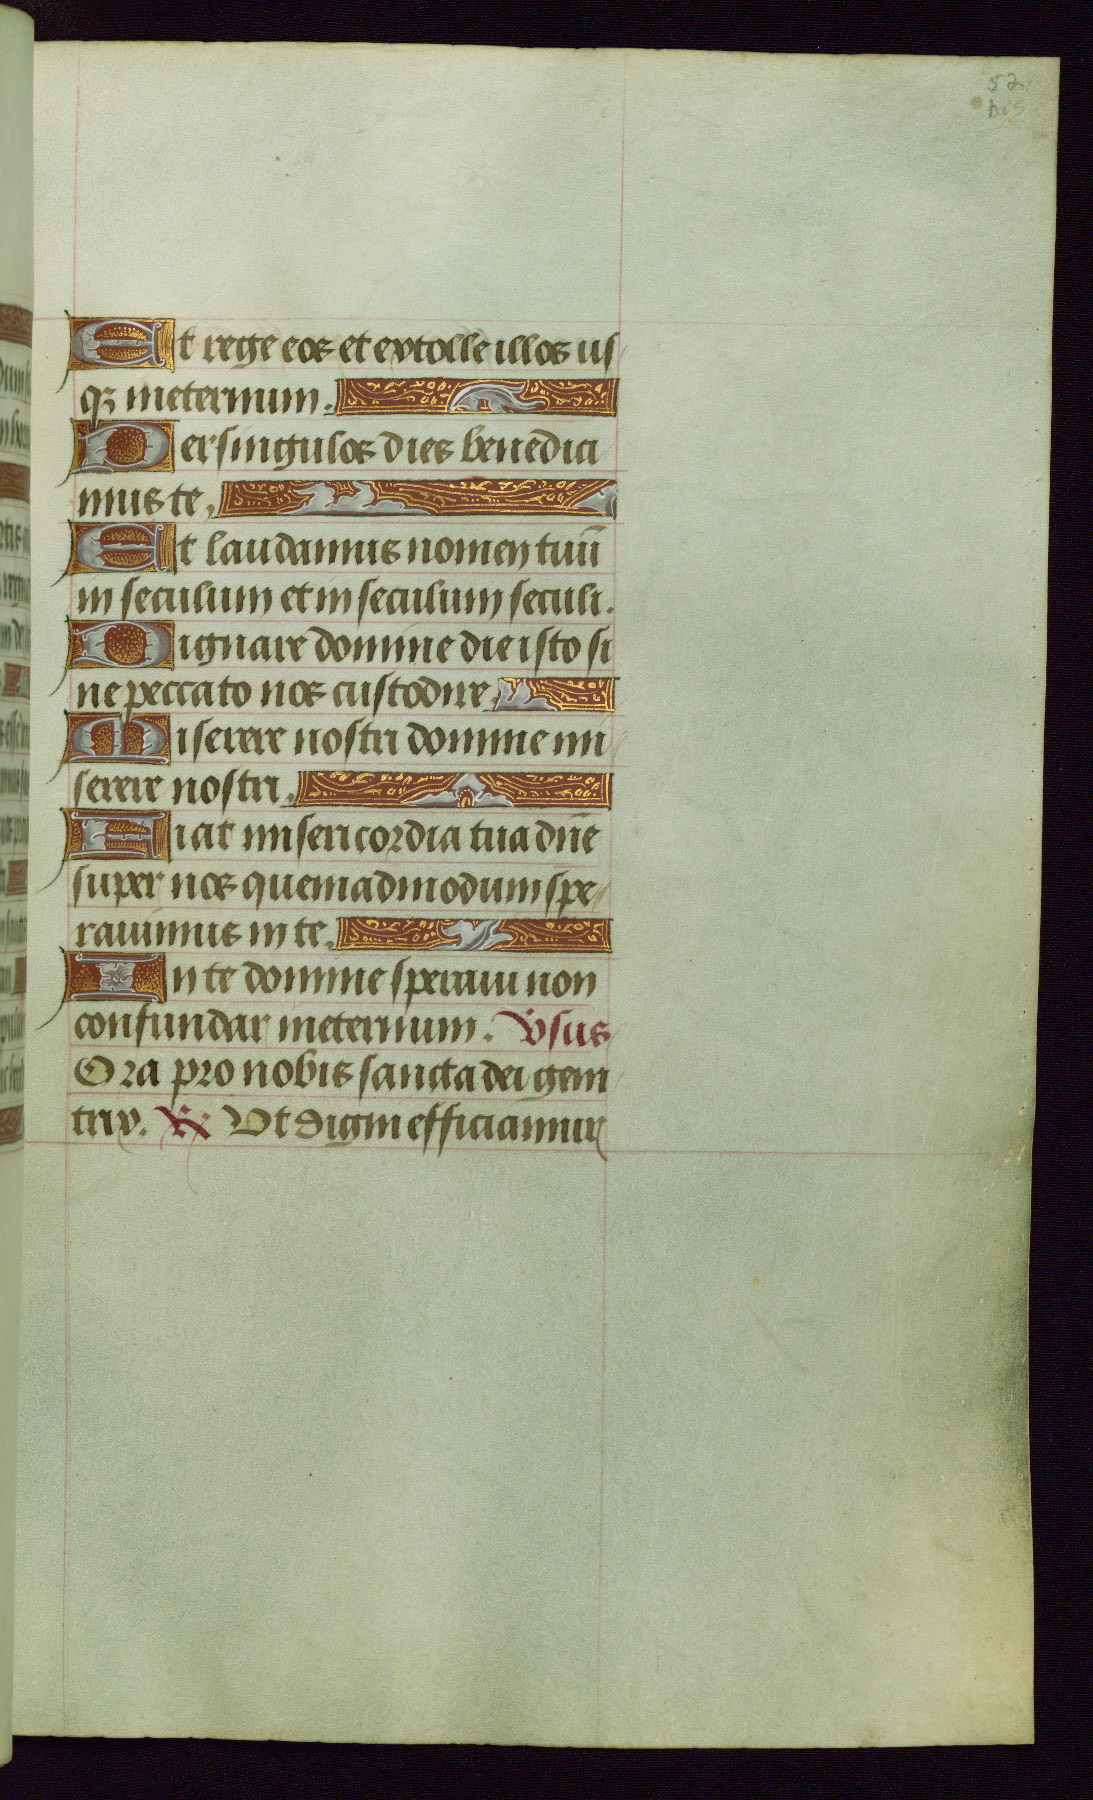 52
bis
Et rege eos et extolle illos us
qz ineternum.
Per singulos dies benedici
mus te.
Et laudamus nomen tuū
in seculum et in seculum seculi.
Dignare domine die isto si
ne peccato nos custodire.
Miserere nostri domine mi
serere nostri.
Fiat misericordia tua dn̄e
super nos quemadmodum spe
rauimus in te.
In te domine speraui non
confundar ineternum. Vsus
Ora pro nobis sancta dei geni
trix. R Vt digni efficiamur